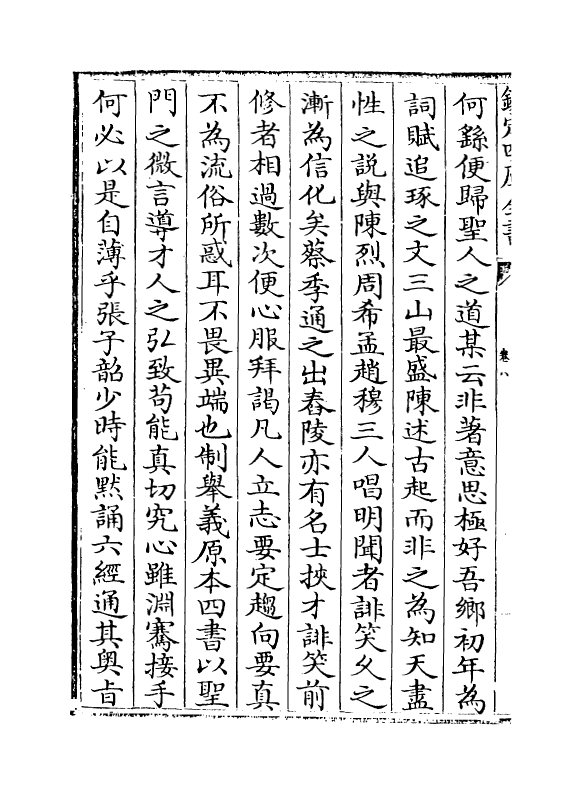 欽定四庫全書
卷八
何繇便歸聖人之道某云非著意思極好吾鄉初年為
詞賦追琢之文三山最盛陳述古起而非之為知天盡
性之説與陳烈周希孟趙穆三人唱明聞者誹笑久之
漸為信化矣蔡季通之出舂陵亦有名士挾才誹笑前
修者相過數次便心服拜謁凡人立志要定趨向要真
不為流俗所惑耳不畏異端也制舉義原本四書以聖
門之微言導才人之弘致茍能真切究心雖淵騫接手
何必以是自薄乎張子韶少時能默誦六經通其奥㫖